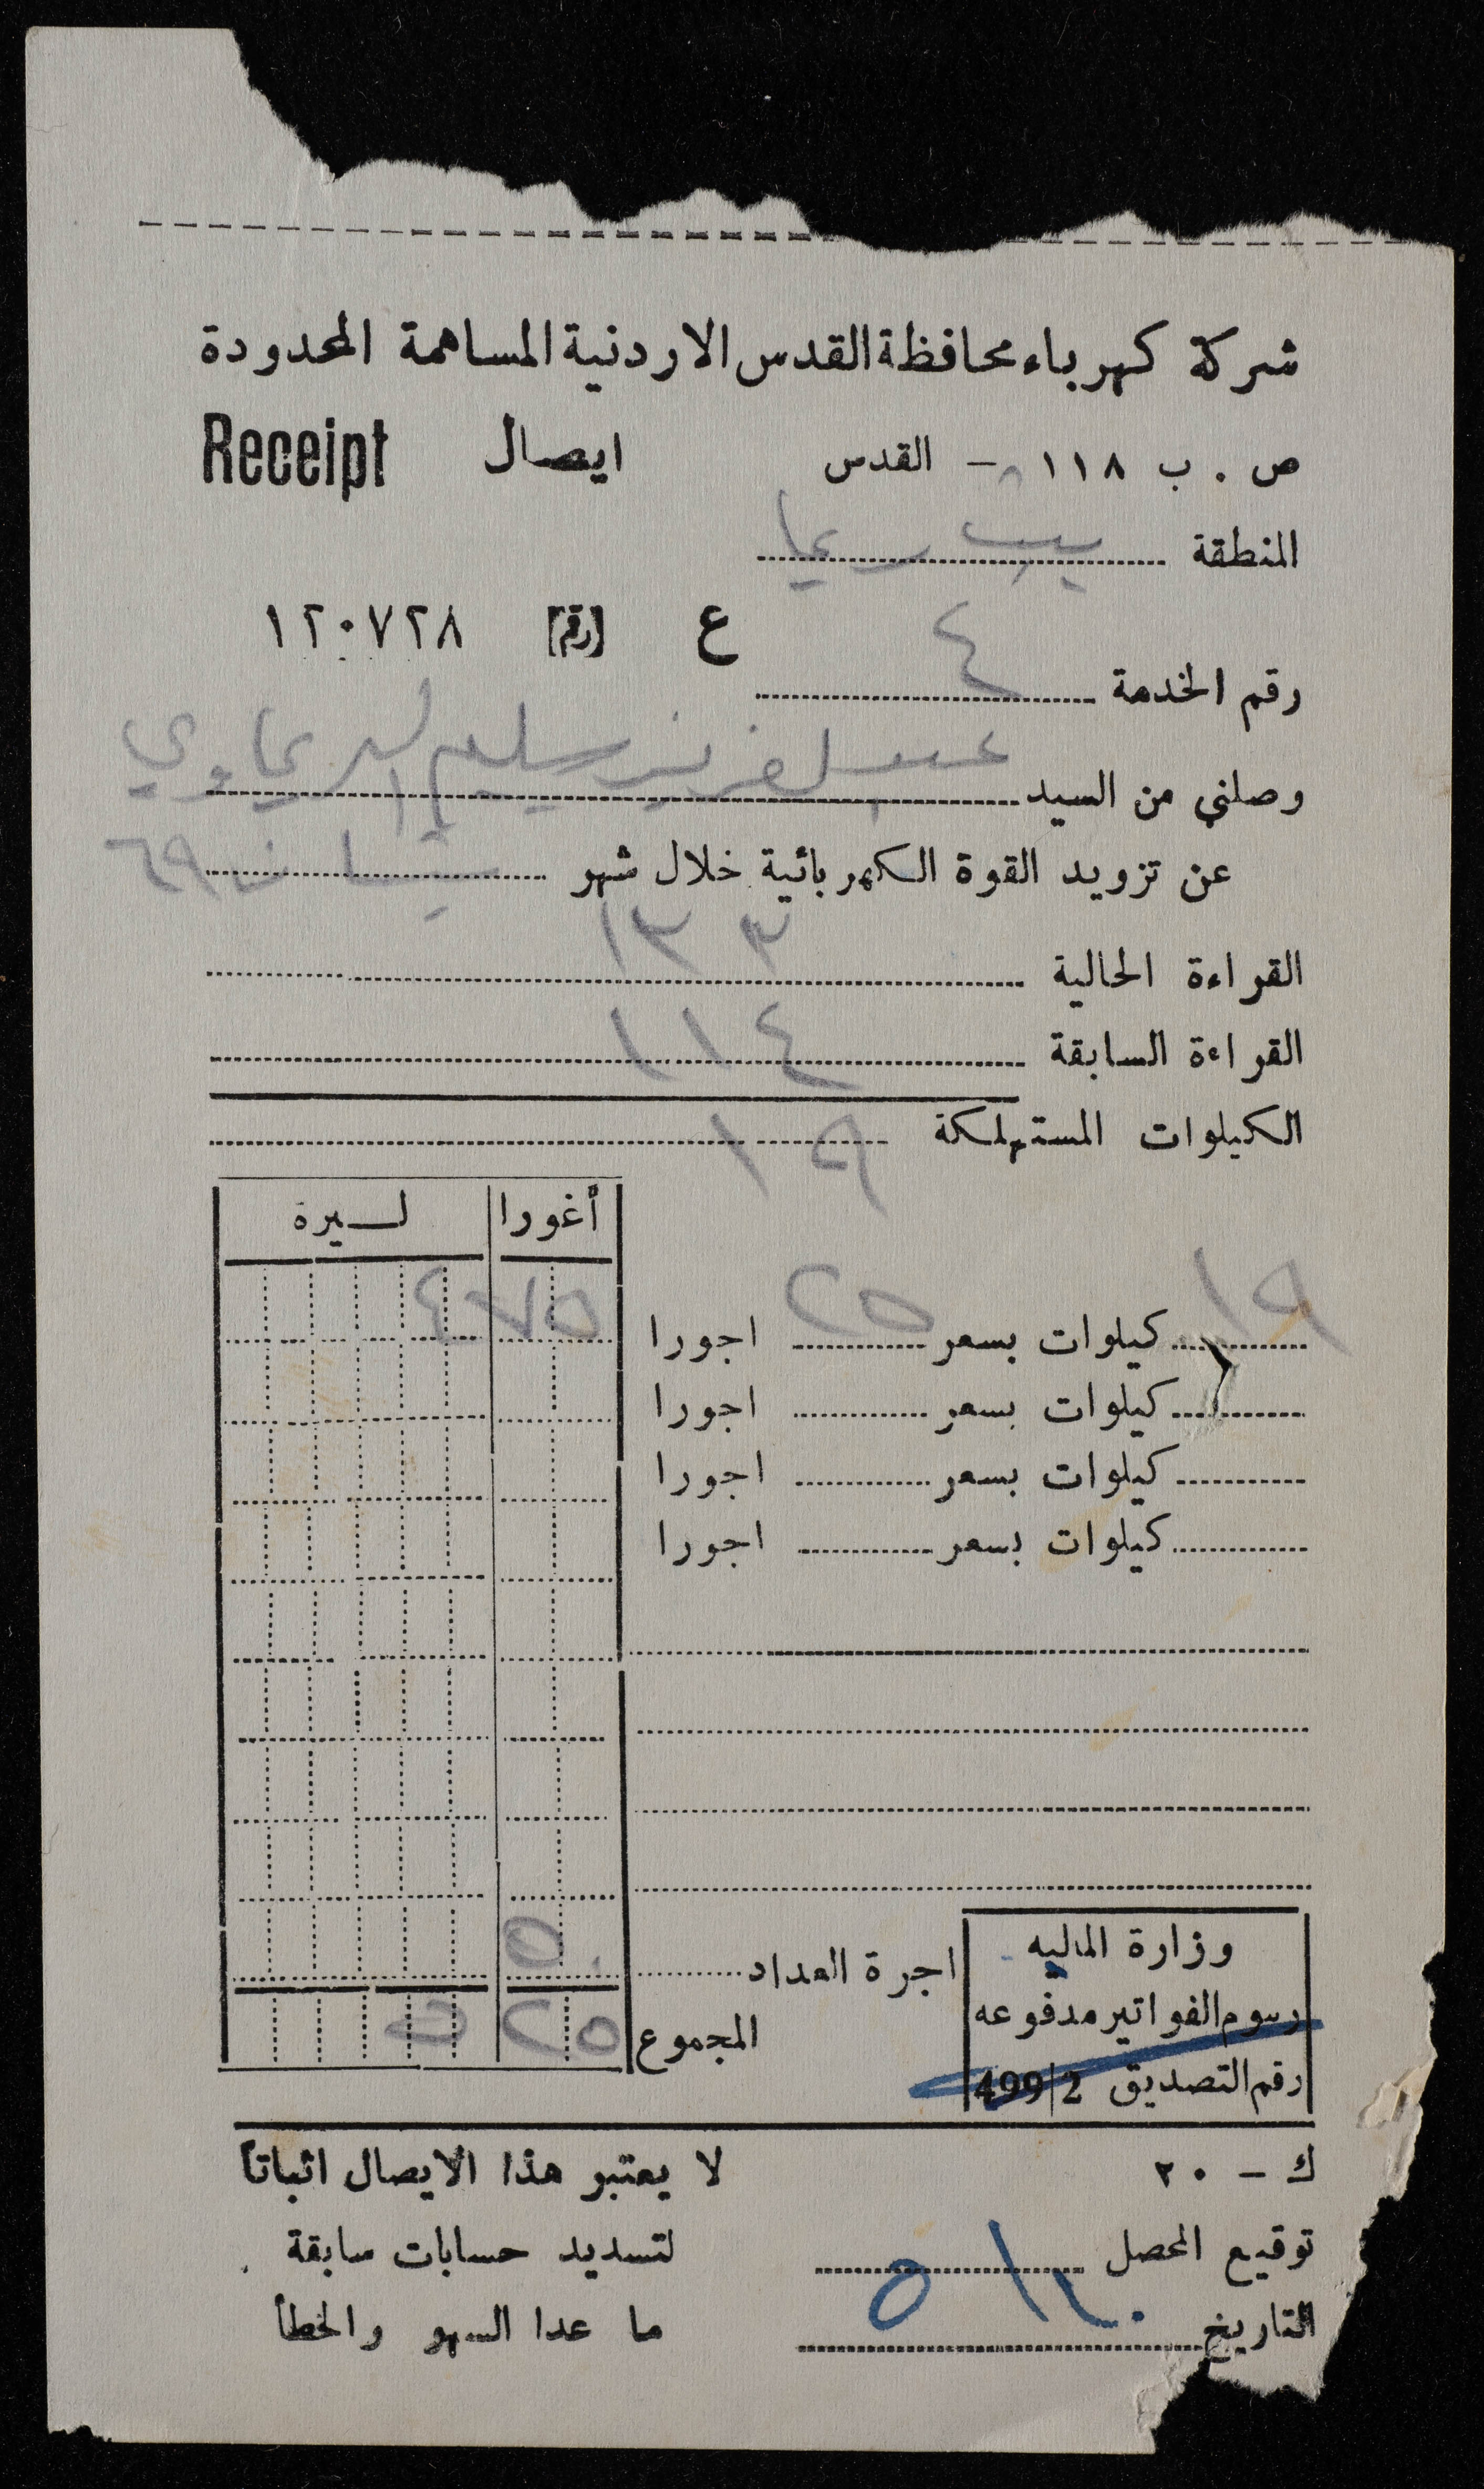 شركة كهرباء محافظة القدس الاردنية المساهمة المحدودة
ص . ب ١١٨ - القدس ايصال Receipt
المنطقة بيت ريما
ع (رقم) ١٢٠٧٢٨
رقم الخدمة ٤
وصلني من السيد عبد العزيز سليم الريماوي
عن تزويد القوة الكهربائية خلال شهر نيسان ٦٩
القراءة الحالية ١٣٣
القراءة السابقة ١١٤
الكيلوات المستهلكة ١٩
أغورا ليرة
١٩ كيلوات بسعر ٢٥ اجورا ٧٥ ٤
كيلوات بسعر اجورا
كيلوات بسعر اجورا
كيلوات بسعر اجورا
وزارة الماليه
رسوم الفواتير مدفوعه
رقم التصديق 499/2
اجرة العداد ٥٠
المجموع ٢٥ ٥
ك - ٢٠
لا يعتبر هذا الايصال اثباتا
توقيع المحصل
لتسديد حسابات سابقة
التاريخ
ما عدا السهو والخطأ